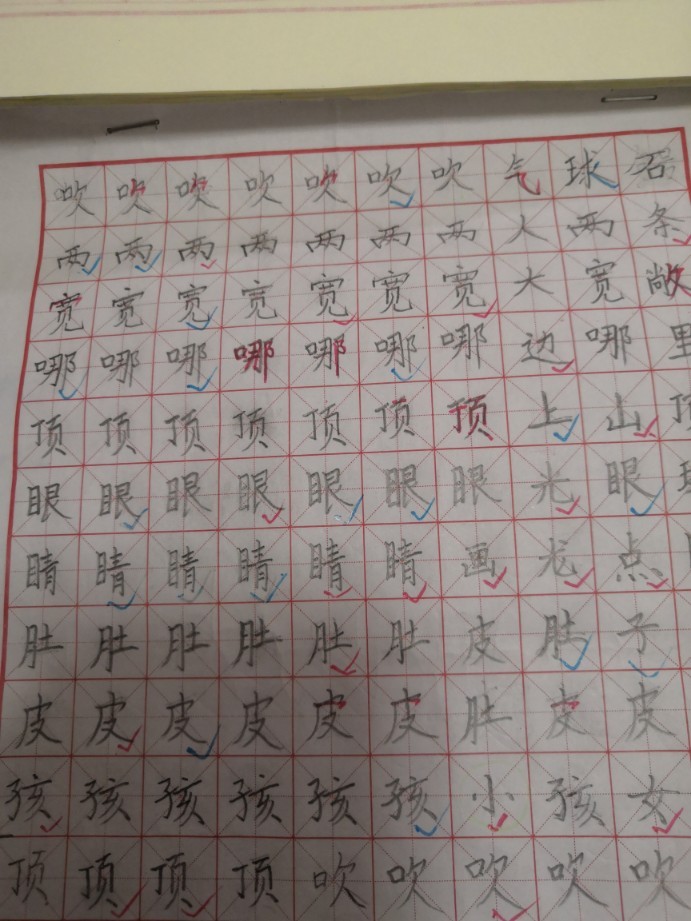 吹吹吹吹吹吹吹气球石
两两两两两两两人两条
宽宽宽宽宽宽宽大宽敞
哪哪哪哪哪哪哪边哪里
顶顶顶顶顶顶顶上山顶
眼眼眼眼眼眼眼光眼
睛睛睛睛睛睛画龙点
肚肚肚肚肚肚皮肚子
皮皮皮皮皮皮肚皮皮
孩孩孩孩孩孩小孩女
顶顶顶顶吹吹吹吹吹